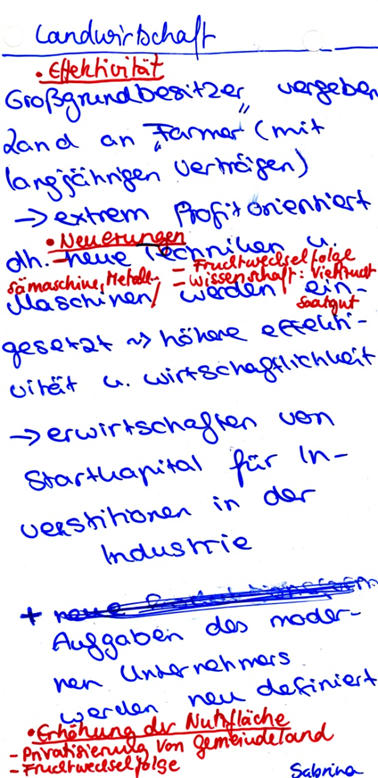 Landwirtschaft
• Effektivität
Großgrundbesitzer vergeben
Land an „Farmer" (mit
langjährigen Verträgen)
→ extrem Profitorientiert
• Neuerungen
dh. neue Techniken u.
sämaschine, Metall- – Fruchtwechselfolge
– Wissenschaft: Viehzucht
Maschinen / werden / ein-
saatgut
gesetzt ~> höhere effekti-
vität u. wirtschaftlichkeit
→ erwirtschaften von
Startkapital für In-
verstitionen in der
Industrie
+ neue
Aufgaben des moder-
nen Unternehmers
werden neu definiert
• Erhöhung der Nutzfläche
– Privatisierung von gemeindeland
– Fruchtwechselfolge
Sabrina